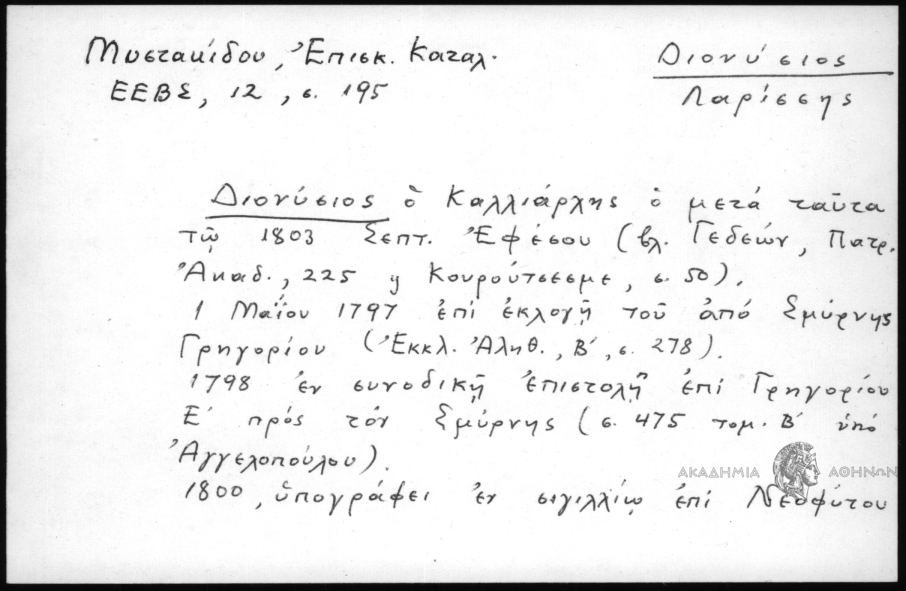 Μυστακίδου, Ἐπισκ. Καταλ.
ΕΕΒΣ, 12, σ. 195
Διονύσιος
Λαρίσσης
Διονύσιος ὁ Καλλιάρχης ὁ μετά ταῦτα
τῷ 1803 Σεπτ. Ἐφέσου (βλ. Γεδεών, Πατρ.
Ἀκαδ., 225 ἤ Κουρούτσεσμε, σ. 50).
1 Μαΐου 1797 ἐπί ἐκλογῇ τοῦ ἀπό Σμύρνης
Γρηγορίου (Ἐκκλ. Ἀληθ., Β΄, σ. 278).
1798 ἐν συνοδικῇ ἐπιστολῇ ἐπί Γρηγορίου
Ε΄ πρός τόν Σμύρνης (σ. 475 τομ. Β΄ ὑπό
Ἀγγελοπούλου).
1800, ὑπογράφει ἐν σιγιλλίῳ ἐπί Νεοφύτου
ΑΚΑΔΗΜΙΑ ΑΘΗΝΩΝ